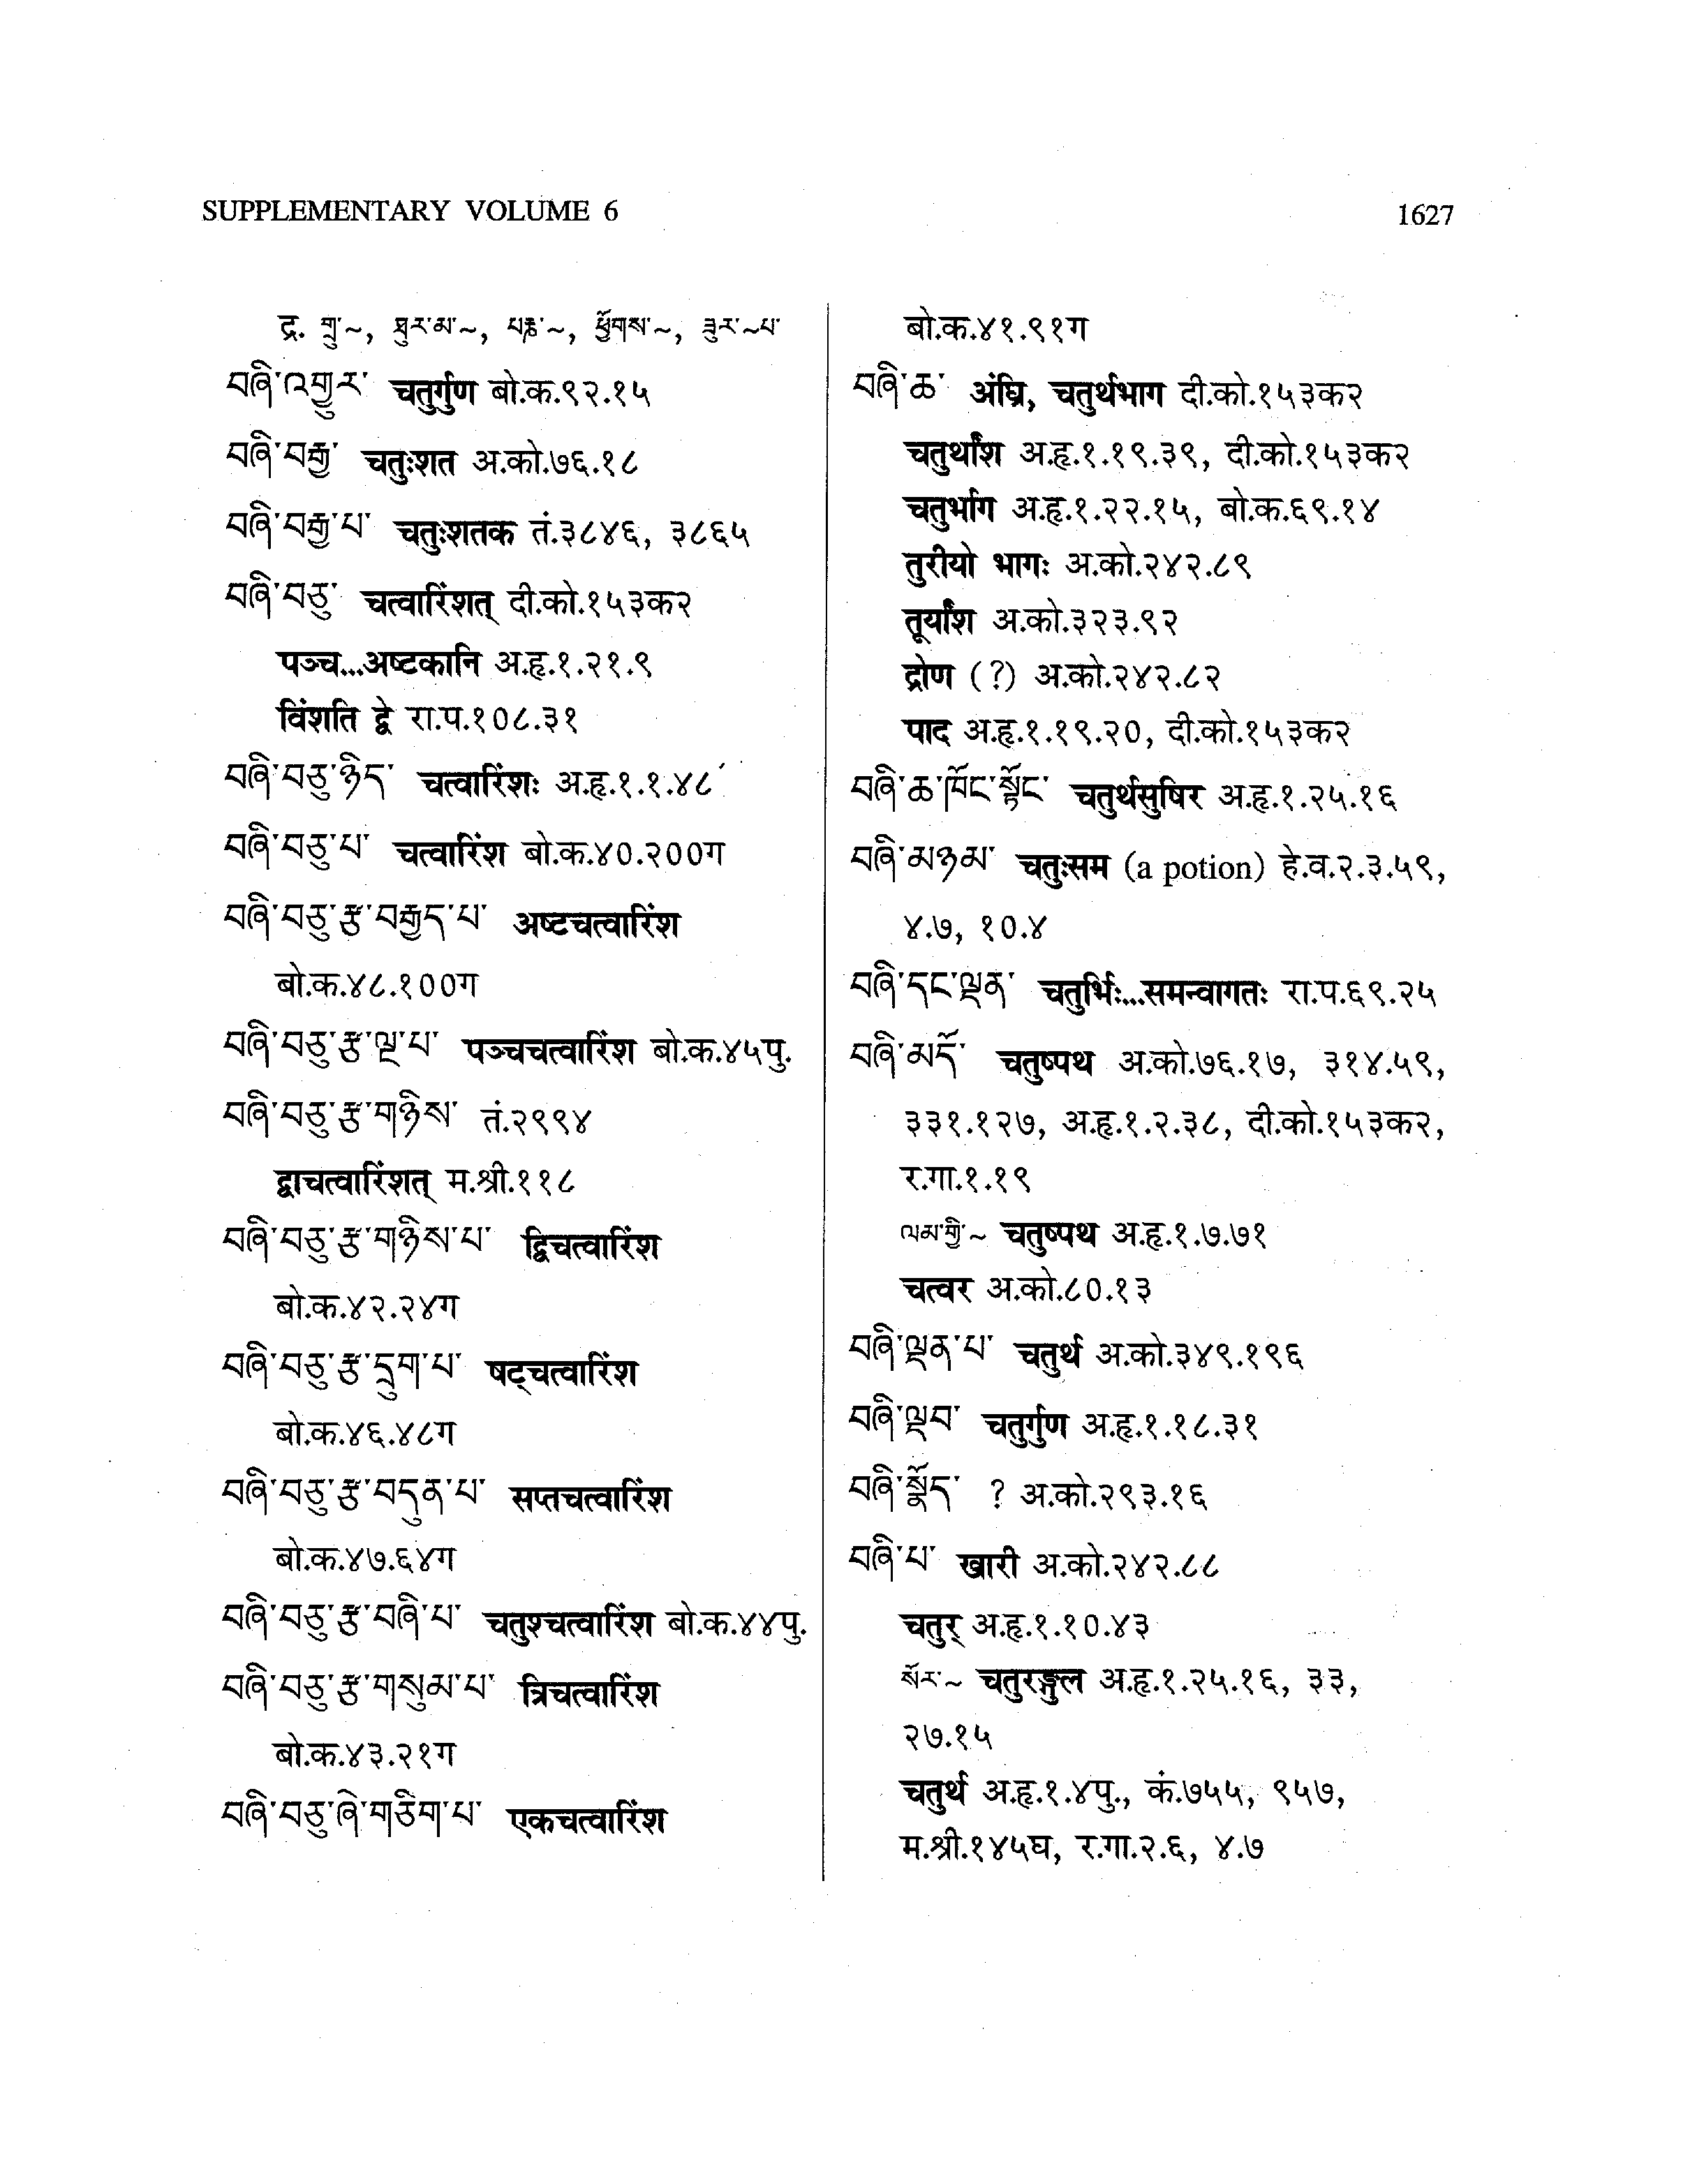 SUPPLEMENTARY VOLUME 6
1627
द्र. གྲུ་~, ཐུར་མ་~, པཎ་~, ཕྱོགས་~, ཟུར་~པ་
བཞི་འགྱུར་ चतुर्गुण बो.क.९२.१५
བཞི་བརྒྱ་ चतुःशत अ.को.७६.१८
བཞི་བརྒྱ་པ་ चतुःशतक तं.३८४६, ३८६५
བཞི་བཅུ་ चत्वारिंशत् दी.को.१५३क२
पञ्च...अष्टकानि अ.हृ.१.२१.९
विंशति द्वे रा.प.१०८.३१
བཞི་བཅུ་ཉིད་ चत्वारिंशः अ.हृ.१.१.४८
བཞི་བཅུ་པ་ चत्वारिंश बो.क.४०.२००ग
བཞི་བཅུ་རྩ་བརྒྱད་པ་ अष्टचत्वारिंश
बो.क.४८.१००ग
བཞི་བཅུ་རྩ་ལྔ་པ་ पञ्चचत्वारिंश बो.क.४५पु.
བཞི་བཅུ་རྩ་གཉིས་ तं.२९९४
द्वाचत्वारिंशत् म.श्री.११८
བཞི་བཅུ་རྩ་གཉིས་པ་ द्विचत्वारिंश
बो.क.४२.२४ग
བཞི་བཅུ་རྩ་དྲུག་པ་ षट्चत्वारिंश
बो.क.४६.४८ग
བཞི་བཅུ་རྩ་བདུན་པ་ सप्तचत्वारिंश
बो.क.४७.६४ग
བཞི་བཅུ་རྩ་བཞི་པ་ चतुश्चत्वारिंश बो.क.४४पु.
བཞི་བཅུ་རྩ་གསུམ་པ་ त्रिचत्वारिंश
बो.क.४३.२१ग
བཞི་བཅུ་ཞེ་གཅིག་པ་ एकचत्वारिंश
बो.क.४१.९१ग
བཞི་ཆ་ अंघ्रि, चतुर्थभाग दी.को.१५३क२
चतुर्थांश अ.हृ.१.१९.३९, दी.को.१५३क२
चतुर्भाग अ.हृ.१.२२.१५, बो.क.६९.१४
तुरीयो भागः अ.को.२४२.८९
तूर्यांश अ.को.३२३.९२
द्रोण (?) अ.को.२४२.८२
पाद अ.हृ.१.१९.२०, दी.को.१५३क२
བཞི་ཆ་ཁོང་སྟོང་ चतुर्थसुषिर अ.हृ.१.२५.१६
བཞི་མཉམ་ चतुःसम (a potion) हे.व.२.३.५९,
४.७, १०.४
བཞི་དང་ལྡན་ चतुर्भिः...समन्वागतः रा.प.६९.२५
བཞི་མདོ་ चतुष्पथ अ.को.७६.१७, ३१४.५९,
३३१.१२७, अ.हृ.१.२.३८, दी.को.१५३क२,
र.गा.१.१९
ལམ་གྱི་~ चतुष्पथ अ.हृ.१.७.७१
चत्वर अ.को.८०.१३
བཞི་ལྡན་པ་ चतुर्थ अ.को.३४९.१९६
བཞི་ལྡབ་ चतुर्गुण अ.हृ.१.१८.३१
བཞི་སྣོད་ ? अ.को.२९३.१६
བཞི་པ་ खारी अ.को.२४२.८८
चतुर् अ.हृ.१.१०.४३
སོར་~ चतुरङ्गुल अ.हृ.१.२५.१६, ३३,
२७.१५
चतुर्थ अ.हृ.१.४पु., कं.७५५, ९५७,
म.श्री.१४५घ, र.गा.२.६, ४.७